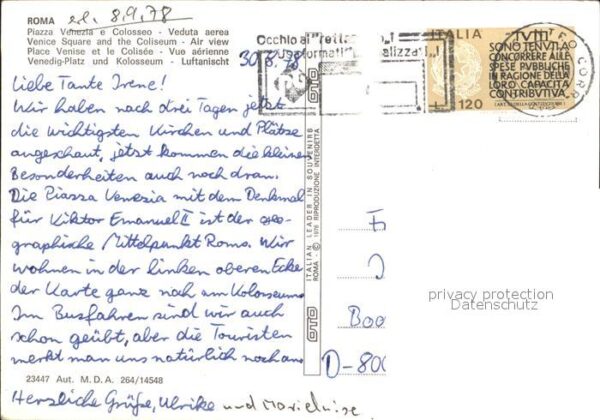 ROMA el. 8.9.78
Piazza Venezia e Colosseo - Veduta aerea
Venice Square and the Coliseum - Air view
Place Venise et le Colisée - Vue aérienne
Venedig-Platz und Kolosseum - Luftansicht
30.8.78
Liebe Tante Irene!
Wir haben nach drei Tagen jetzt
die wichtigsten Kirchen und Plätze
angeschaut, jetzt kommen die kleinen
Besonderheiten auch noch dran.
Die Piazza Venezia mit dem Denkmal
für Viktor Emanuel II ist der geo-
graphische Mittelpunkt Roms. Wir
wohnen in der linken oberen Ecke
der Karte ganz nah am Kolosseum.
Im Busfahren sind wir auch
schon geübt, aber die Touristen
merkt man uns natürlich noch an.
23447 Aut. M.D.A. 264/14548
Herzliche Grüße, Ulrike und Marieluise
OTO
ITALIAN LEADER IN SOUVENIRS
ROMA - © 1976 RIPRODUZIONE INTERDETTA
OTO
Occhio ai
ITALIA
120
TUTTI
SONO TENUTI A
CONCORRERE ALLE
SPESE PUBBLICHE
IN RAGIONE DELLA
LORO CAPACITÀ
CONTRIBUTIVA.
F
J
Boo
D-800
privacy protection
Datenschutz